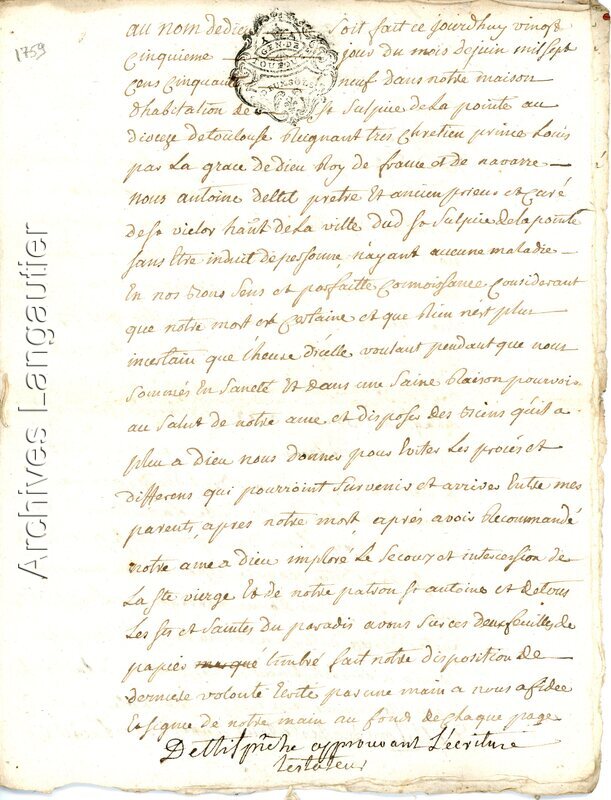 1759
au nom de dieu soit fait ce jourdhuy vingt
cinquieme jours du mois de juin mil sept
cens cinquante neuf dans notre maison
dhabitation de st Sulpice de La pointe au
dioceze de toulouse Reignant tres Chretien prince Louis
par La grace de dieu Roy de france et de navarre
nous antoine delbl pretre Et ancien prieur et Curé
de st victor haut de La ville dud st Sulpice de la pointe
sans Etre induit de personne n'ayant aucune maladie
En nos bons Sens et parfaitte Connoissance Considerant
que notre mort est Certaine et que Rien n'est plus
incertain que l'heure d'icelle voulant pendant que nous
sommés En Santé Et dans une Saine Raison pourvoir
au Salut de notre ame et disposer des biens qu'il a
plu a Dieu nous donner pour Eviter Les procés et
differens qui pourroint Survenir et arriver Entre mes
parents, apres notre mort, aprés avoir Recommandé
notre ame a Dieu imploré Le Secour et intercession de
La Ste vierge Et de notre patron st antoine et de tous
Les sts et Saintes du paradis avons Sur ces deux feuilles de
papier marqué timbré fait notre disposition de
derniere volonté Ecrite par une main a nous afidée
Et signée de notre main au fonds de Chaque page
pretre approuvant L'ecriture
testateur
Archives Langautier